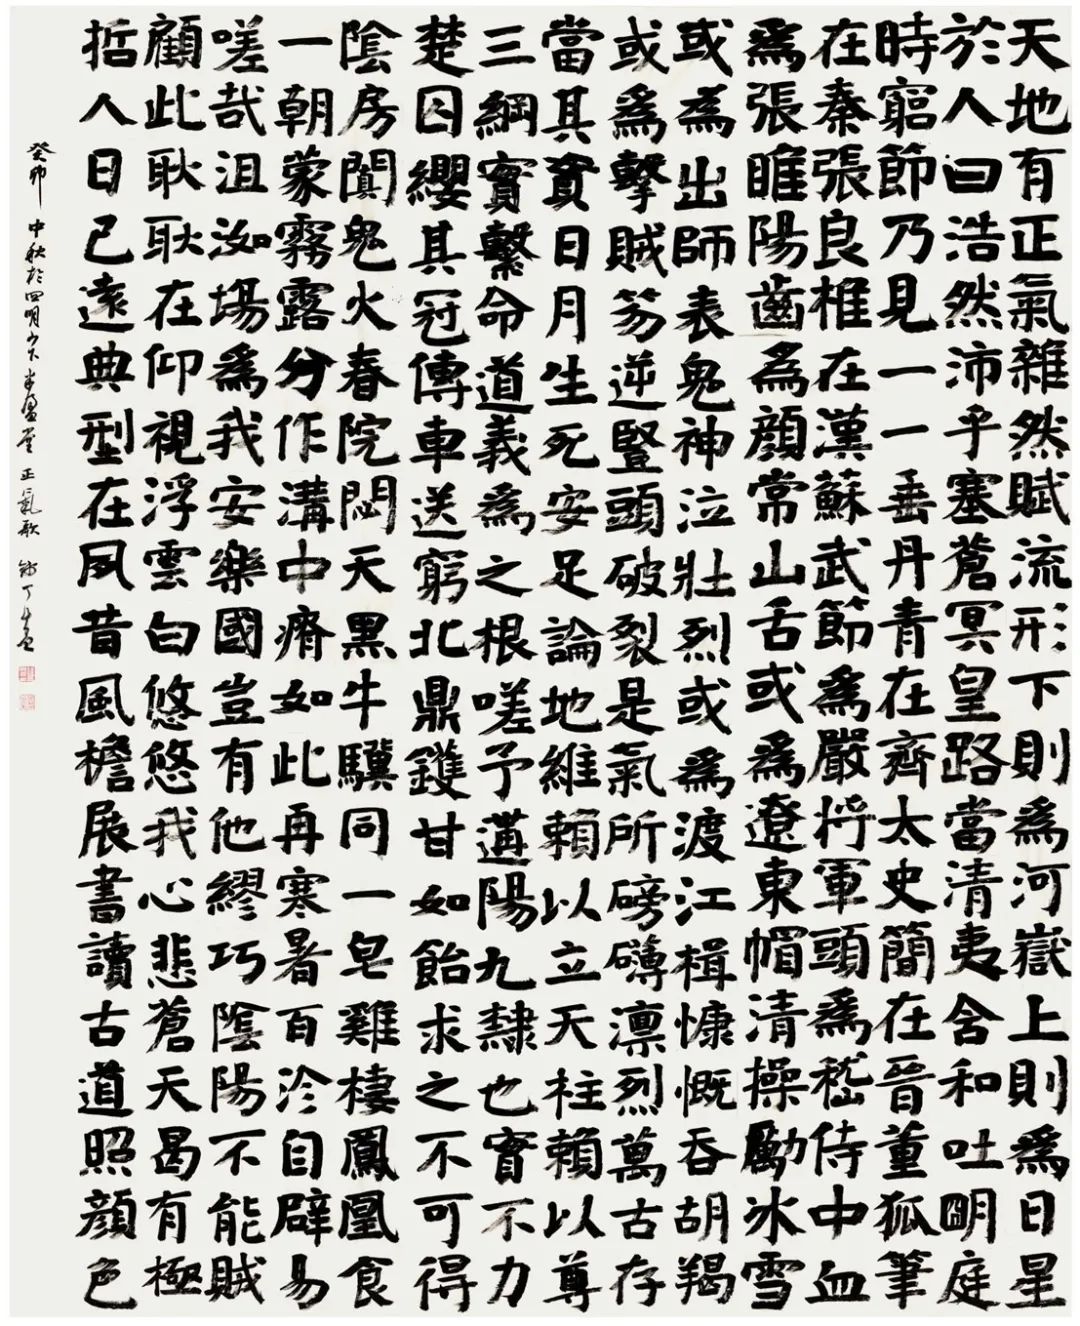 天地有正氣雜然賦流形下則爲河嶽上則爲日星
於人曰浩然沛乎塞蒼冥皇路當清夷含和吐明庭
時窮節乃見一一垂丹青在齊太史簡在晉董狐筆
在秦張良椎在漢蘇武節爲嚴將軍頭爲嵇侍中血
爲張睢陽齒爲顏常山舌或爲遼東帽清操勵冰雪
或爲出師表鬼神泣壯烈或爲渡江楫慷慨吞胡羯
或爲擊賊笏逆豎頭破裂是氣所磅礴凛烈萬古存
當其貫日月生死安足論地維賴以立天柱賴以尊
三綱實繫命道義爲之根嗟予遘陽九隸也實不力
楚囚纓其冠傳車送窮北鼎鑊甘如飴求之不可得
陰房闐鬼火春院閟天黑牛驥同一皂雞棲鳳凰食
一朝蒙霧露分作溝中瘠如此再寒暑百沴自辟易
嗟哉沮洳場爲我安樂國豈有他繆巧陰陽不能賊
顧此耿耿在仰視浮雲白悠悠我心悲蒼天曷有極
哲人日已遠典型在夙昔風檐展書讀古道照顏色
癸卯中秋於四明山下正氣歌